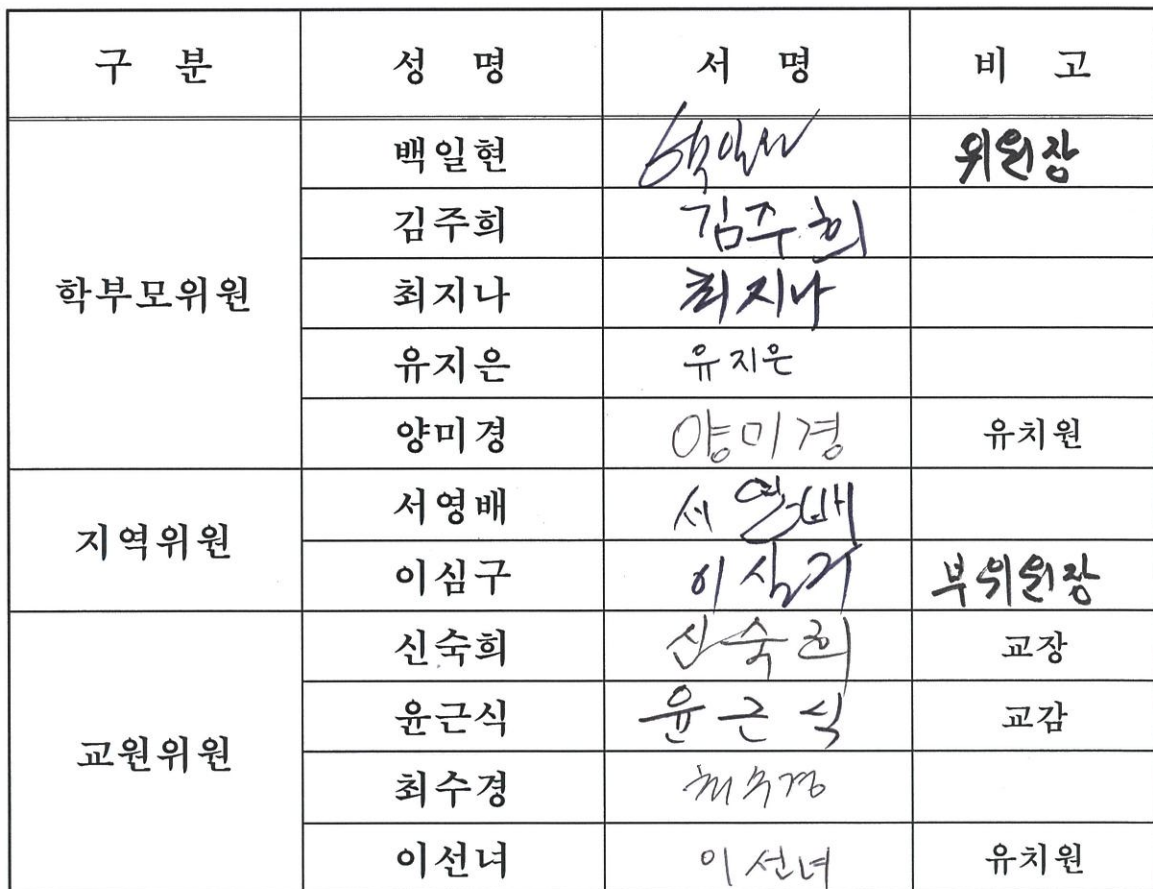 구 분 성 명 서 명 비 고
학부모위원
백일현 백일현 위원장
김주희 김주희
최지나 최지나
유지은 유지은
양미경 양미경 유치원
지역위원
서영배 서영배
이심구 이심구 부위원장
교원위원
신숙희 신숙희 교장
윤근식 윤근식 교감
최수경 최수경
이선녀 이선녀 유치원